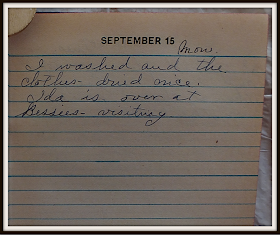 SEPTEMBER 15
Mon.
I washed and the
clothes dried nice.
Ida is over at
Bessies visiting.